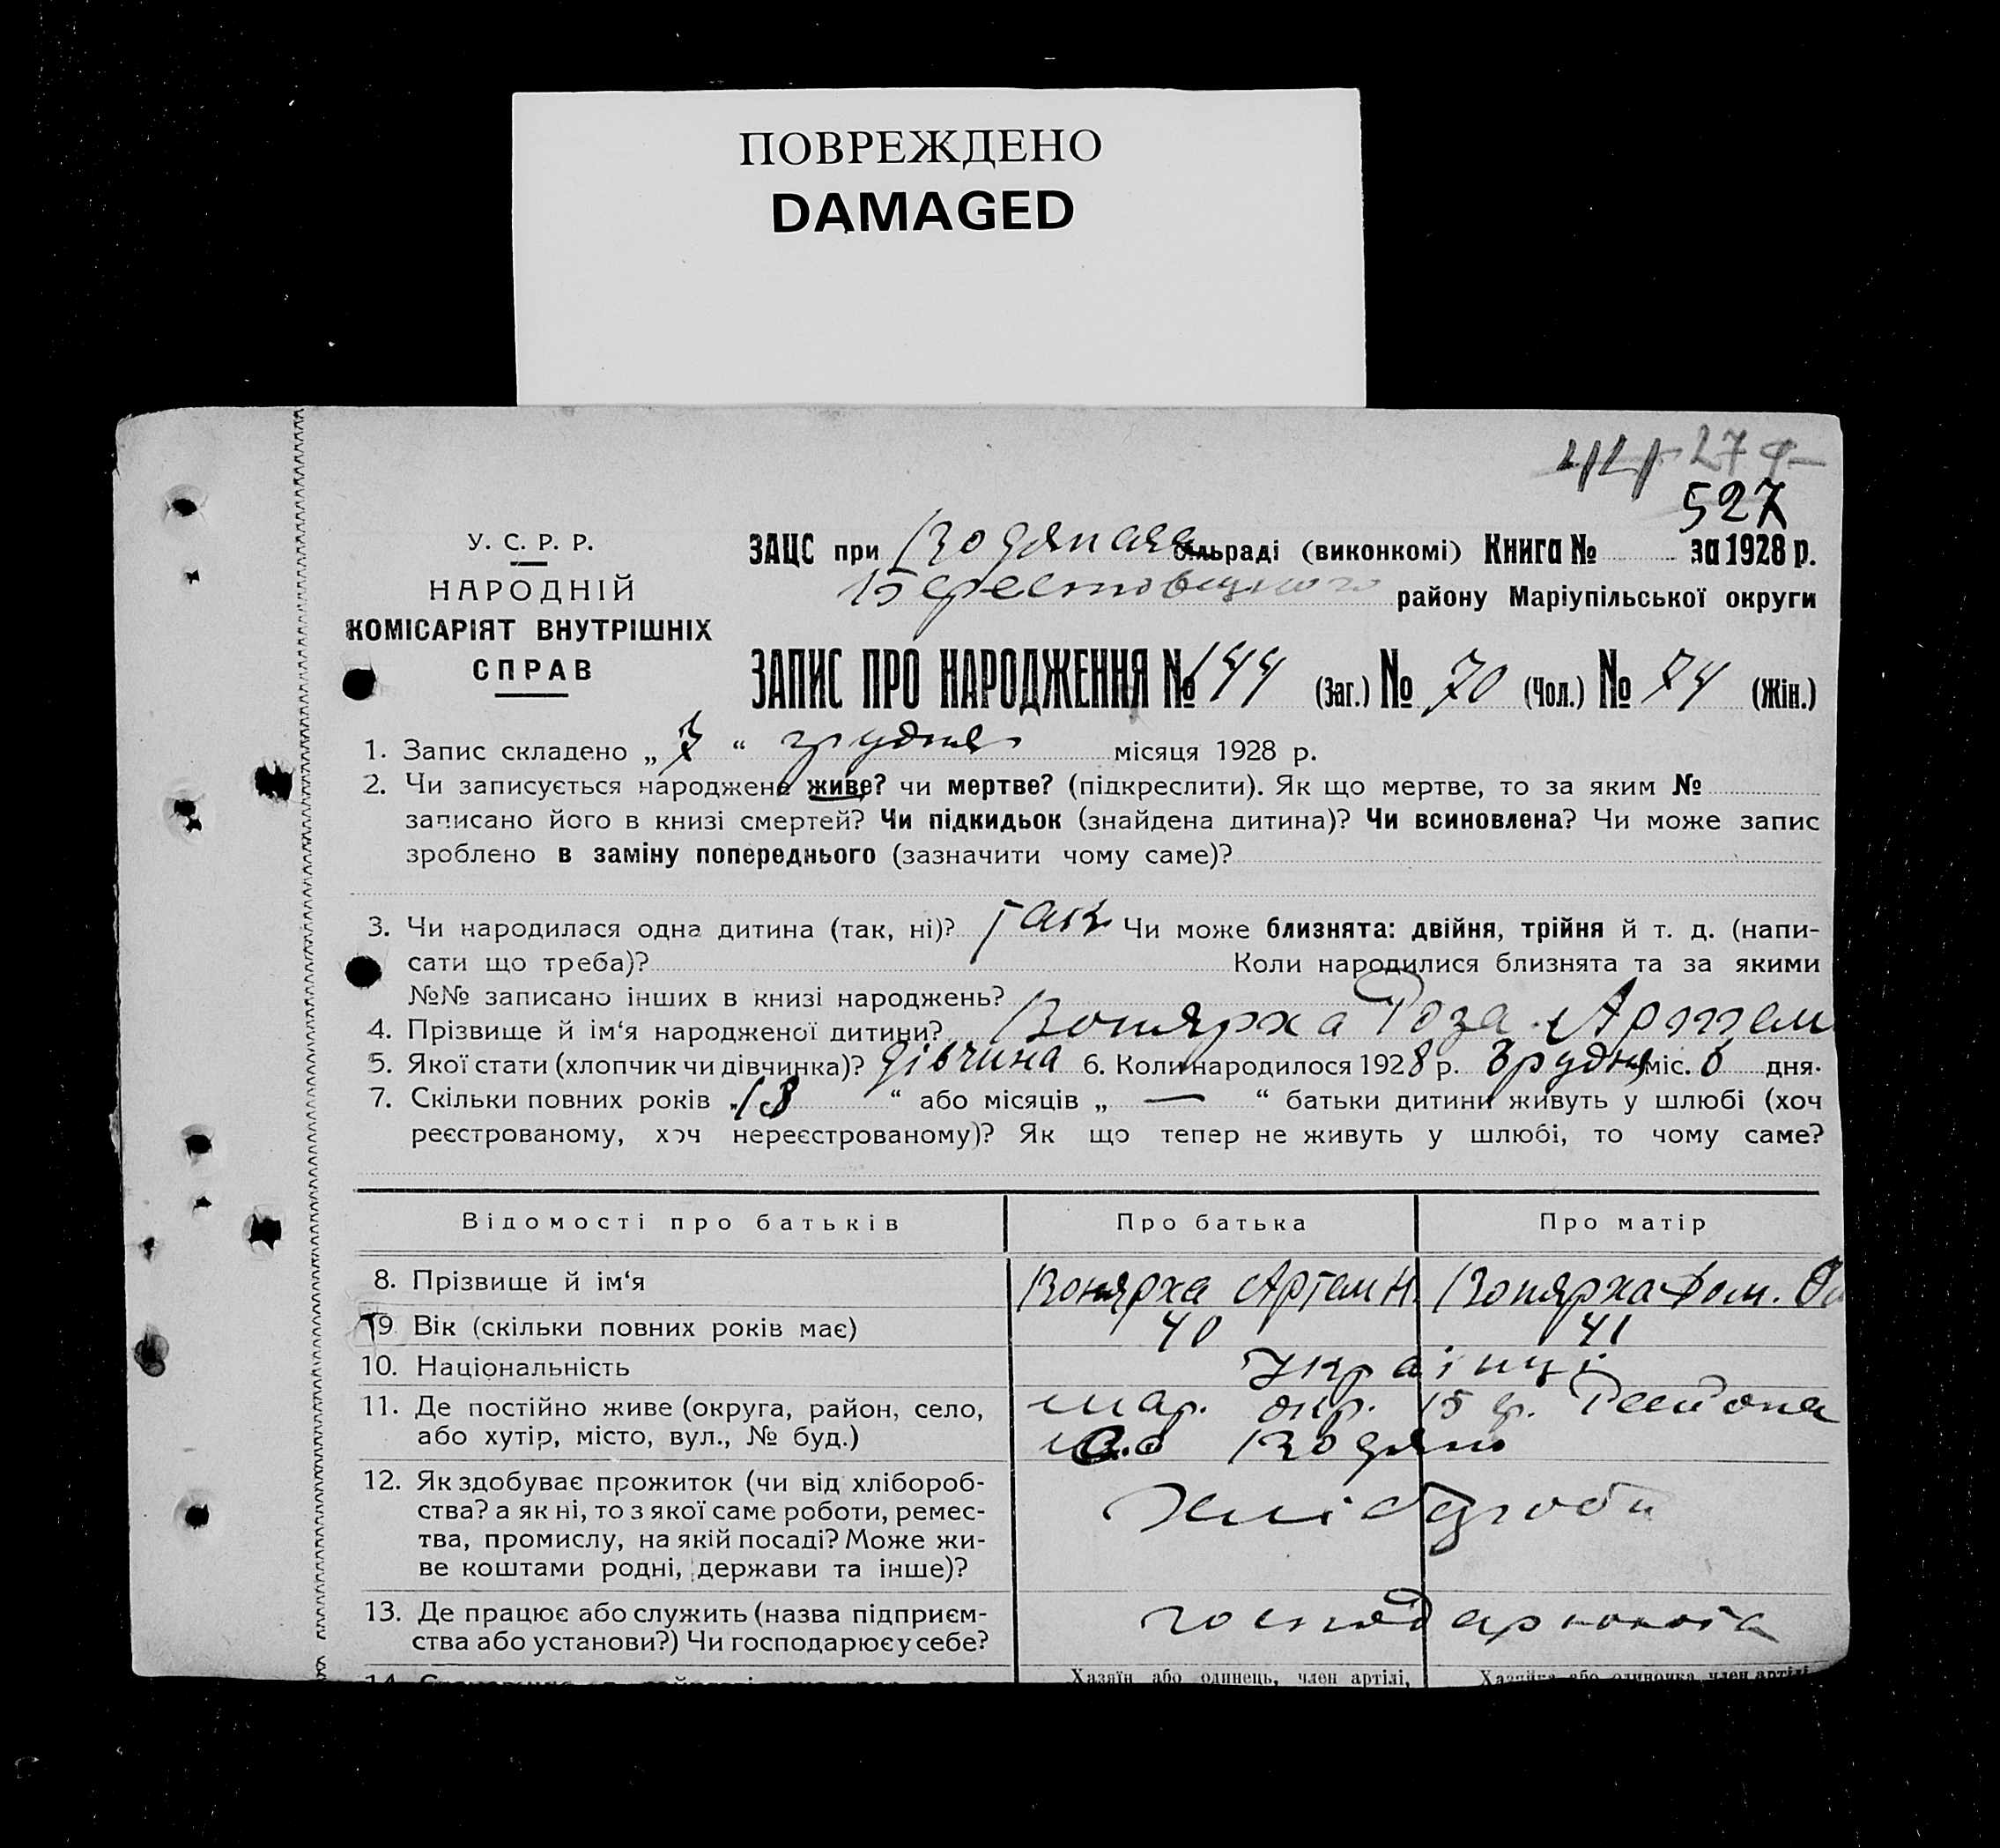 ПОВРЕЖДЕНО
DAMAGED
27
527
У. С. Р. Р.
НАРОДНІЙ
КОМІСАРІЯТ ВНУТРІШНІХ
СПРАВ
ЗАЦС при сільраді (виконкомі) Книга № за 1928 р.
району Маріупільської округи
ЗАПИС ПРО НАРОДЖЕННЯ № 144 (Заг.) № 70 (Чол.) № 74 (Жін.)
1. Запис складено „ 7 “ грудня місяця 1928 р.
2. Чи записується народжене живе? чи мертве? (підкреслити). Як що мертве, то за яким №
записано його в книзі смертей? Чи підкидьок (знайдена дитина)? Чи всиновлена? Чи може запис
зроблено в заміну попереднього (зазначити чому саме)?
3. Чи народилася одна дитина (так, ні)? Так Чи може близнята: двійня, трійня й т. д. (напи-
сати що треба)? Коли народилися близнята та за якими
№№ записано інших в книзі народжень?
4. Прізвище й ім‘я народженої дитини? Вонярха Роза Артем
5. Якої стати (хлопчик чи дівчинка)? дівчина 6. Коли народилося 1928 р. грудня міс. дня.
7. Скільки повних років „ 13 “ або місяців „ — “ батьки дитини живуть у шлюбі (хоч
реєстрованому, хоч нереєстрованому)? Як що тепер не живуть у шлюбі, то чому саме?
Відомості про батьків Про батька Про матір
8. Прізвище й ім‘я Вонярха Артем Н. Вонярха Дом.
9. Вік (скільки повних років має) 40 41
10. Національність Українці
11. Де постійно живе (округа, район, село, мар. окр.
або хутір, місто, вул., № буд.) Водяно
12. Як здобуває прожиток (чи від хлібороб-
ства? а як ні, то з якої саме роботи, ремес-
тва, промислу, на якій посаді? Може жи-
ве коштами родні, держави та інше)?
13. Де працює або служить (назва підприєм-
ства або установи?) Чи господарює у себе?
Хазяїн або одинець, член артілі, Хазяйка або одиночка член артілі